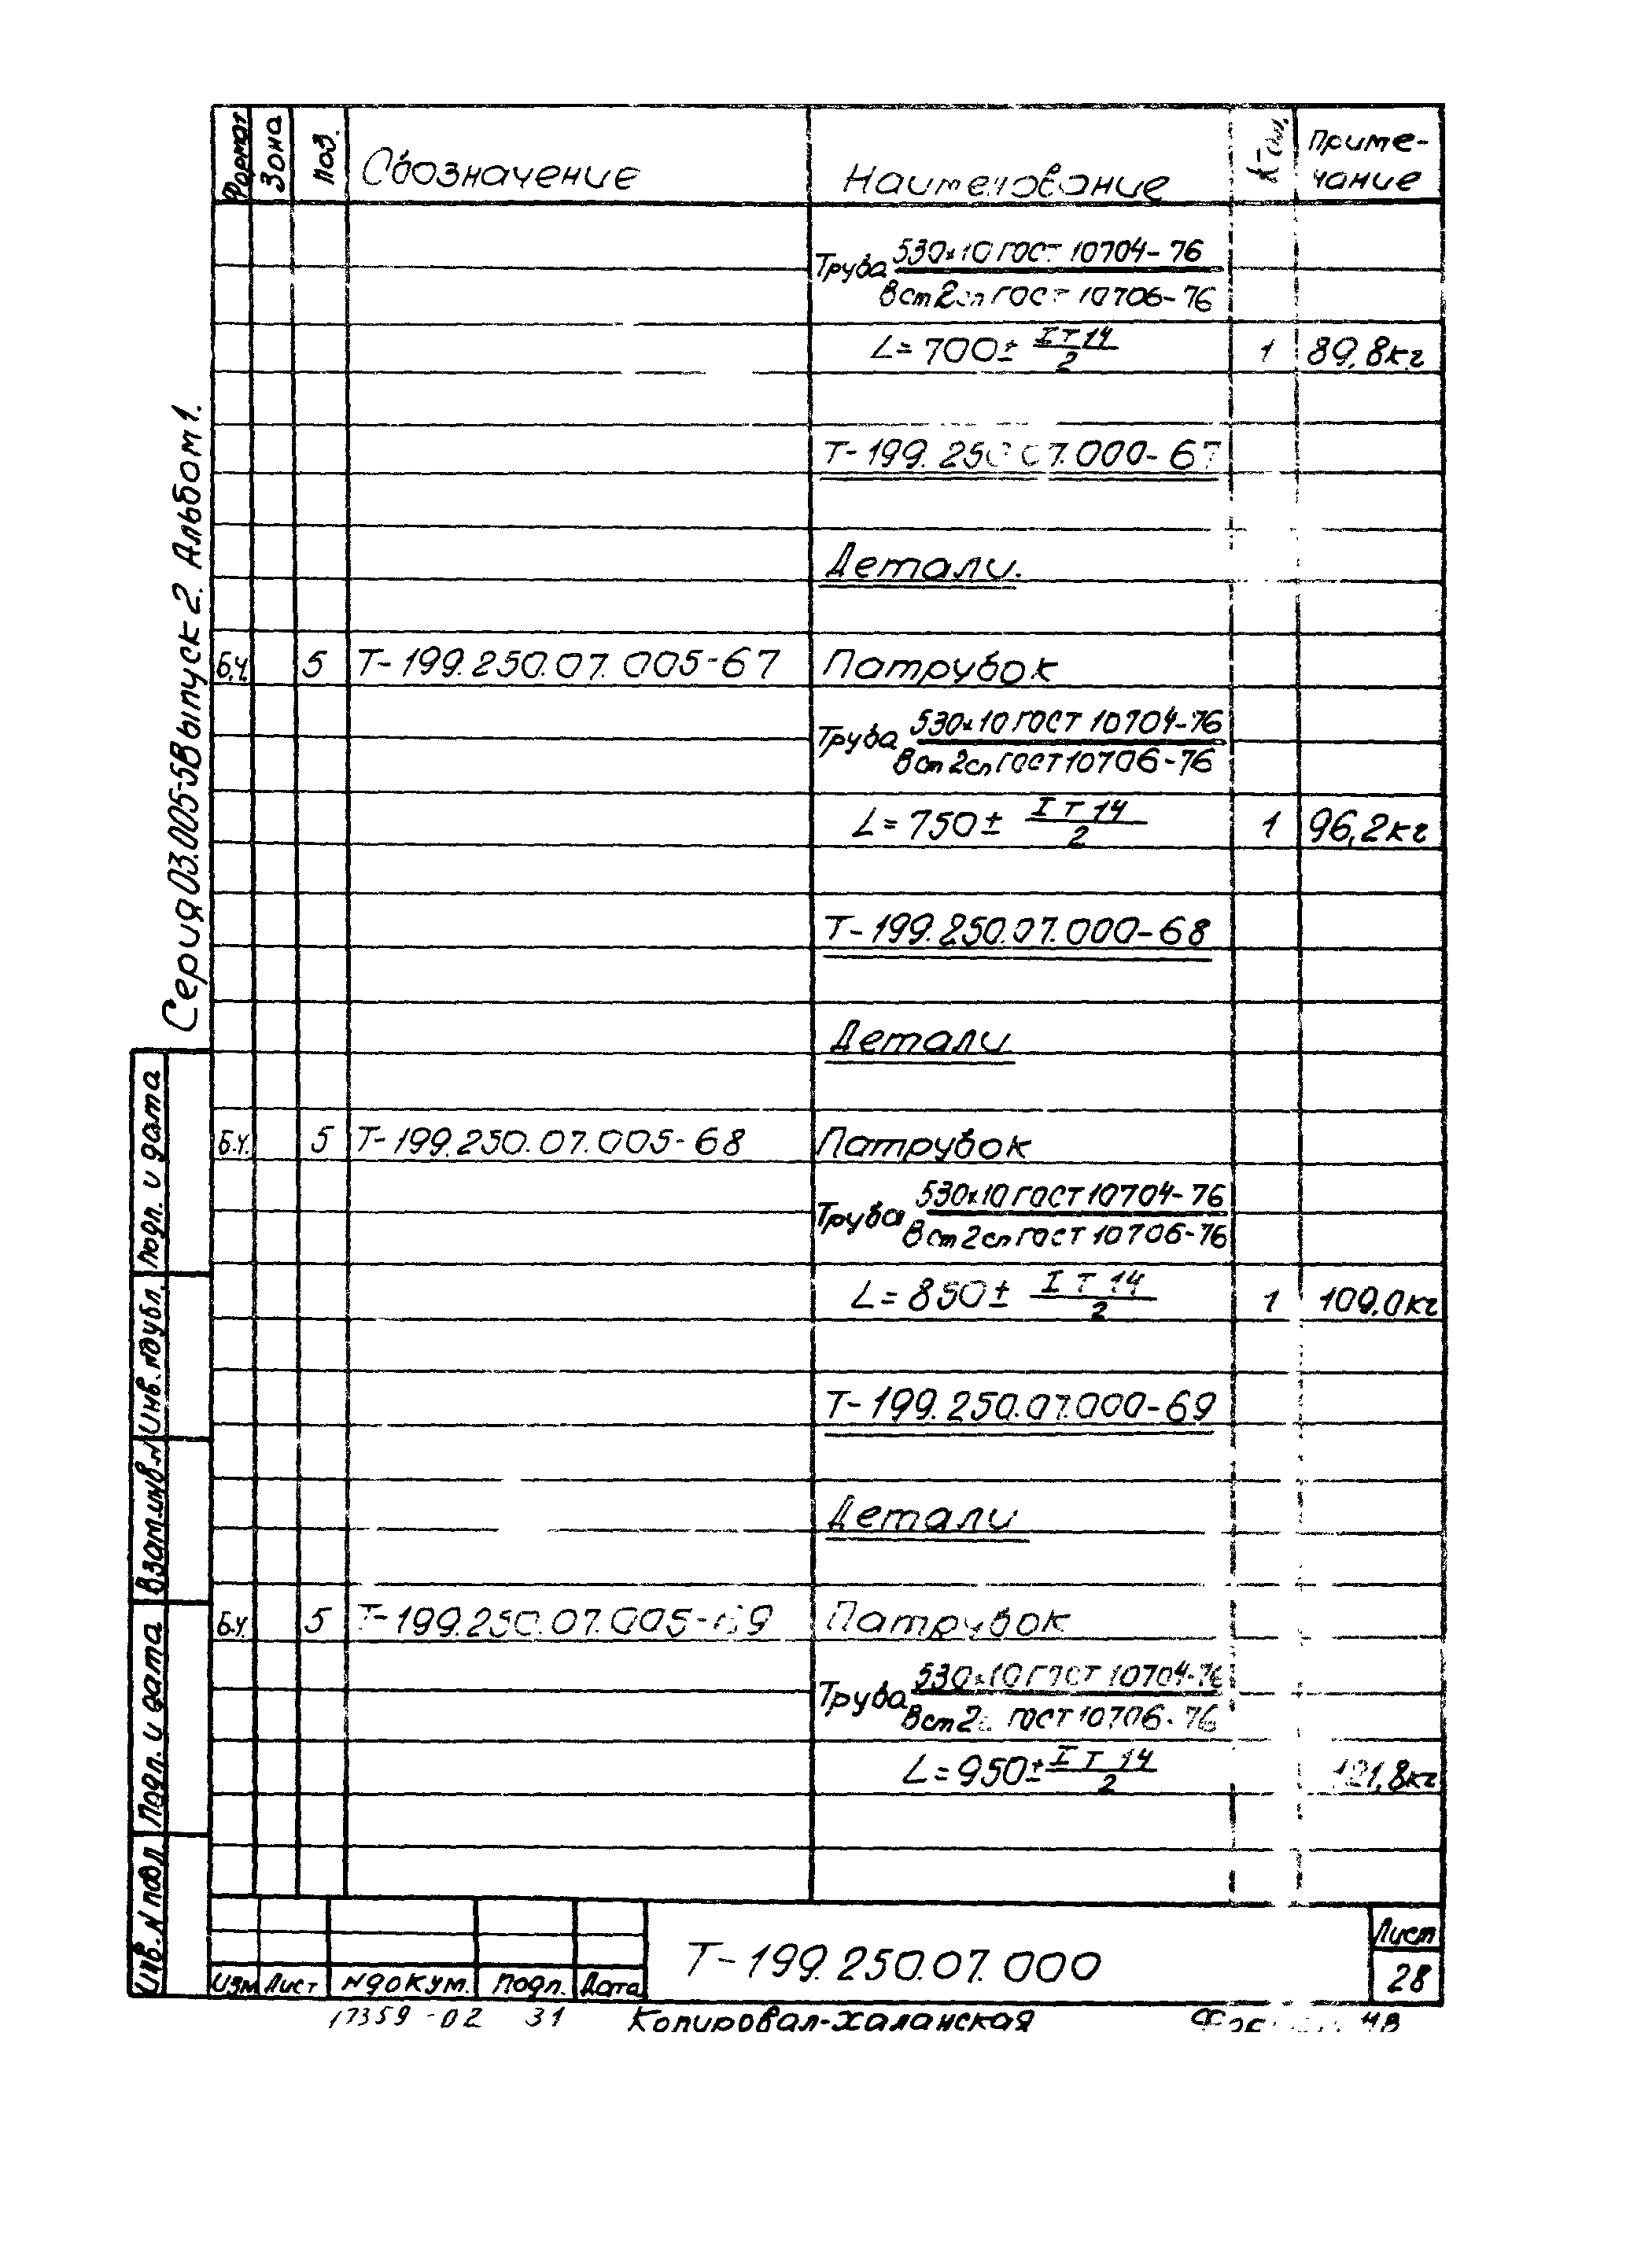 Формат Зона Поз. Обозначение Наименование Кол. Приме-
чание
Труба 530×10 ГОСТ 10704-76
Вст2сп ГОСТ 10706-76
L=700± IT14/2 1 89,8кг
Т-199.250.07.000-67
Детали.
Б.Ч. 5 Т-199.250.07.005-67 Патрубок
Труба 530×10 ГОСТ 10704-76
Вст2сп ГОСТ 10706-76
L=750± IT14/2 1 96,2кг
Т-199.250.07.000-68
Детали
Б.Ч. 5 Т-199.250.07.005-68 Патрубок
Труба 530×10 ГОСТ 10704-76
Вст2сп ГОСТ 10706-76
L=850± IT14/2 1 109,0кг
Т-199.250.07.000-69
Детали
Б.Ч. 5 Т-199.250.07.005-69 Патрубок
Труба 530×10 ГОСТ 10704-76
Вст2 ГОСТ 10706-76
L=950± IT14/2 121,8кг
Серия 03.005-5 Выпуск 2. Альбом 1.
Подп. и дата
Инв. № дубл.
Взам. инв. №
Подп. и дата
Инв. № подл
Изм Лист № докум. Подп. Дата
Т-199.250.07.000
Лист
28
17359-02 31 Копировал-Халанская